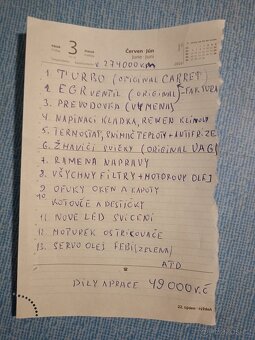 3
Červen Jún
v 274000km
1. TURBO (ORIGINAL GARRET)
2. EGR VENTIL (ORIGINAL) FAKTURA
3. PŘEVODOVKA (VÝMĚNA)
4. NAPÍNACÍ KLADKA, ŘEMEN KLIMY
5. TERMOSTAT, SNÍMAČ TEPLOTY + ANTIFR. ZE
6. ŽHAVÍCÍ SVÍČKY (ORIGINAL VAG)
7. RAMENA NAPRAVY
8. VŠECHNY FILTRY + MOTOROVY OLEJ
9. OFUKY OKEN A KAPOTY
10. KOTOUČE A DESTIČKY
11. NOVÉ LED SVÍCENÍ
12. MOTUREK OSTŘIKOVAČE
13. SERVO OLEJ FEBI (ZELENÁ)
ATD
DÍLY A PRÁCE 49000 KČ
22. týden